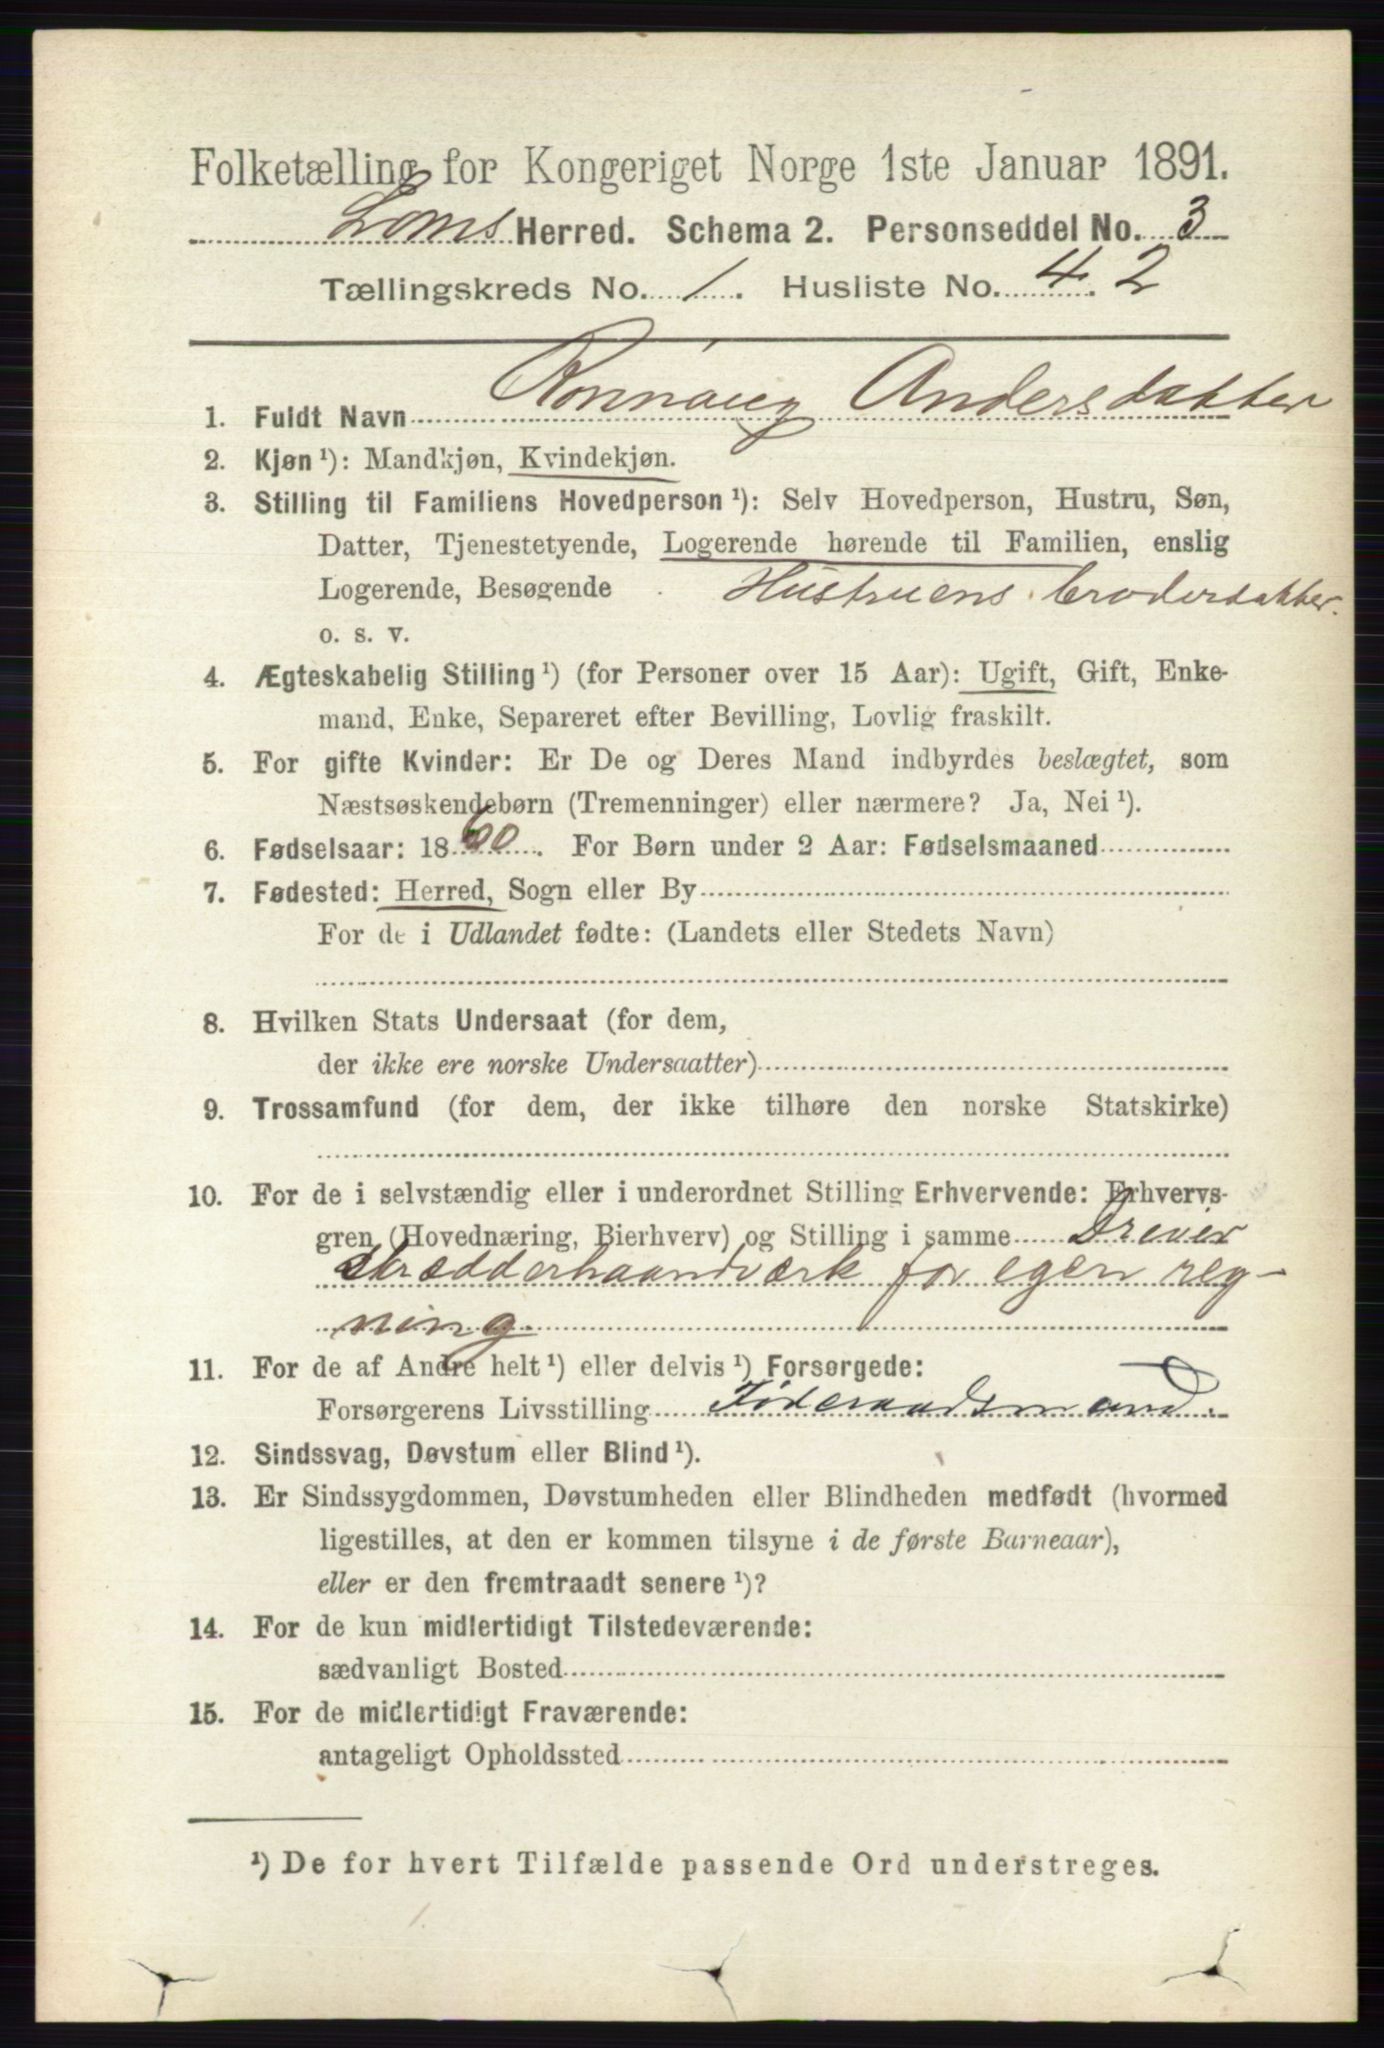 Folketælling for Kongeriget Norge 1ste Januar 1891.
Loms Herred. Schema 2. Personseddel No. 3
Tællingskreds No. 1. Husliste No. 42
1. Fuldt Navn Rønnaug Andersdatter
2. Kjøn ¹): Mandkjøn, Kvindekjøn.
3. Stilling til Familiens Hovedperson ¹): Selv Hovedperson, Hustru, Søn,
Datter, Tjenestetyende, Logerende hørende til Familien, enslig
Logerende, Besøgende Hustruens broderdatter.
o. s. v.
4. Ægteskabelig Stilling ¹) (for Personer over 15 Aar): Ugift, Gift, Enke-
mand, Enke, Separeret efter Bevilling, Lovlig fraskilt.
5. For gifte Kvinder: Er De og Deres Mand indbyrdes beslægtet, som
Næstsøskendebørn (Tremenninger) eller nærmere? Ja, Nei ¹).
6. Fødselsaar: 1860. For Børn under 2 Aar: Fødselsmaaned
7. Fødested: Herred, Sogn eller By
For de i Udlandet fødte: (Landets eller Stedets Navn)
8. Hvilken Stats Undersaat (for dem,
der ikke ere norske Undersaatter)
9. Trossamfund (for dem, der ikke tilhøre den norske Statskirke)
10. For de i selvstændig eller i underordnet Stilling Erhvervende: Erhvervs-
gren (Hovednæring, Bierhverv) og Stilling i samme Drever
Skrædderhaandværk for egen reg-
ning
11. For de af Andre helt ¹) eller delvis ¹) Forsørgede:
Forsørgerens Livsstilling Føderaadsmand.
12. Sindssvag, Døvstum eller Blind ¹).
13. Er Sindssygdommen, Døvstumheden eller Blindheden medfødt (hvormed
ligestilles, at den er kommen tilsyne i de første Barneaar),
eller er den fremtraadt senere ¹)?
14. For de kun midlertidigt Tilstedeværende:
sædvanligt Bosted
15. For de midlertidigt Fraværende:
antageligt Opholdssted
¹) De for hvert Tilfælde passende Ord understreges.